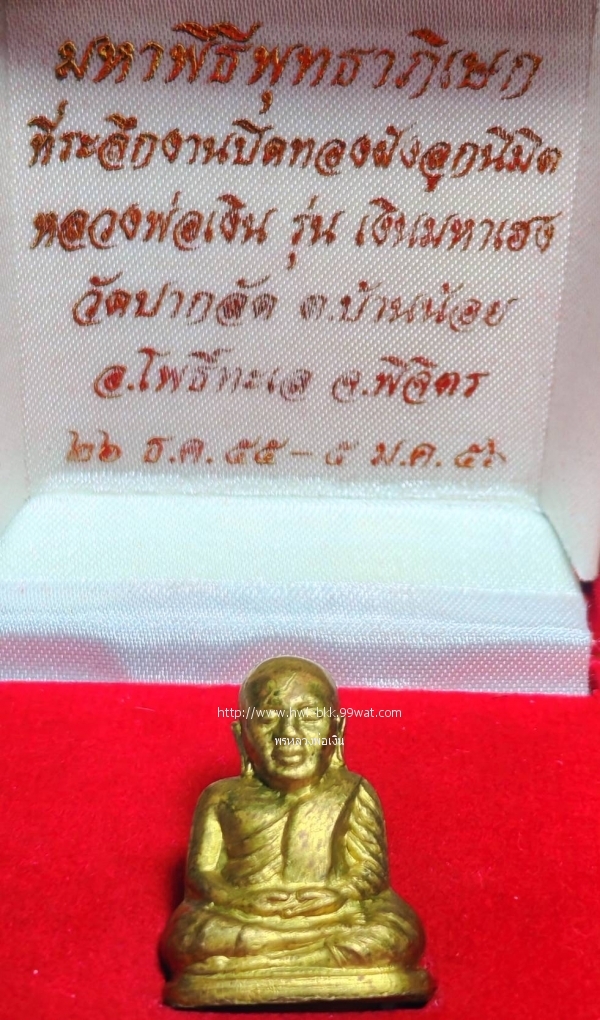 มหาพิธีพุทธาภิเษก
ที่ระลึกงานปิดทองฝังลูกนิมิต
หลวงพ่อเงิน รุ่น เงินมหาเฮง
วัดปากลัด ต.บ้านน้อย
อ.โพธิ์ทะเล จ.พิจิตร
๒๒ ธ.ค. ๕๕ - ๕ ม.ค. ๕๖
http://www.hwk-bkk.99wat.com
พรหลวงพ่อเงิน